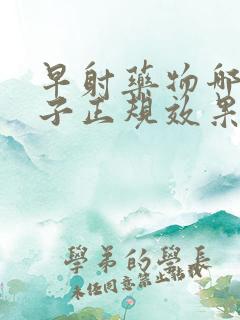 早射藥物哪
子正規效果
學弟的學長
未任同意禁止轉載